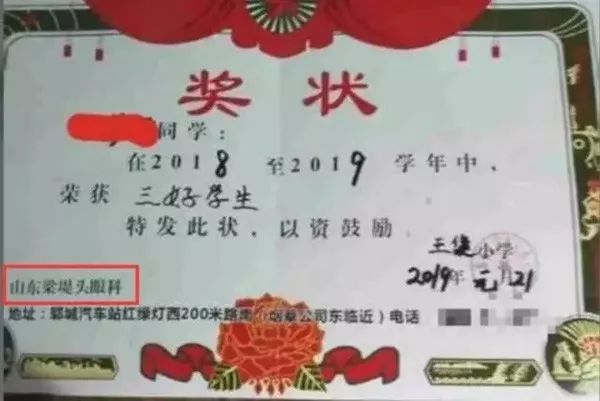 奖状
同学：
在2018至2019学年中、
荣获 三好学生
特发此状，以资鼓励。
王俊小学
2019年元月21
山东梁堤头眼科
地址：郓城汽车站红绿灯西200米路南（烟草公司东临近）电话